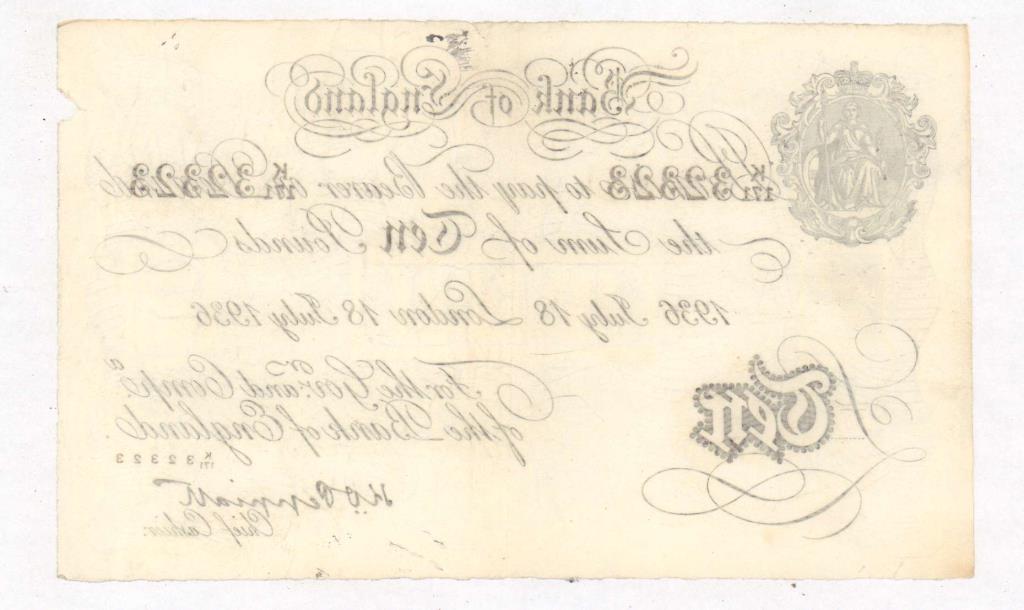 Bank of England
K/171 32323 to pay the Bearer K/171 32323
the Sum of Ten Pounds
1936 July 18 London 18 July 1936
For the Govr. and Compa.
of the Bank of England.
K/171 32323
K O Peppiatt
Chief Cashier.
Ten